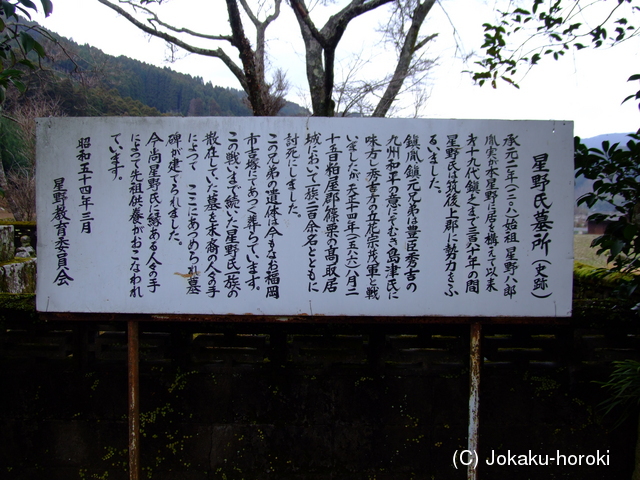 星野氏墓所(史跡)
承元二年(一二〇八)始祖 星野八郎
胤実が本星野に居を構えて以来
才十九代鎮之まで三百八十年の間
星野氏は筑後上郡に勢力をふ
るいました。
鎮胤 鎮元兄弟は豊臣秀吉の
九州和平の意にそむき島津氏に
味方し秀吉方の立花宗茂軍と戦
いましたが天正十四年(一五八六)八月二
十五日粕屋郡篠栗の高取居
城において一族三百余名とともに
討死にしました。
この兄弟の遺体は今もなお福岡
市吉塚にてあつく葬らています。
この戦いまで続いた星野氏一族の
散在していた墓を末裔の人の手
によって ここにあつめられ墓
碑が建てられました。
今尚星野氏に縁ある人々の手
によって先祖供養がおこなわれ
ています。
昭和五十四年三月
星野教育委員会
(C) Jokaku-horoki